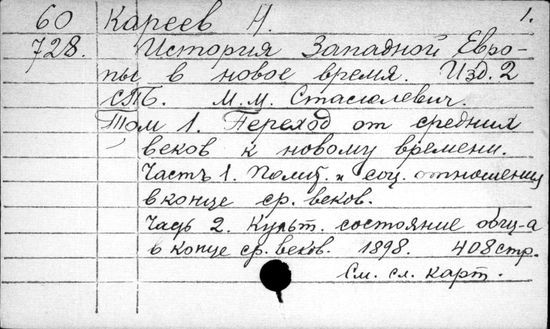 60 Кареев Н. 1.
728. История Западной Евро-
пы в новое время. Изд. 2
СПб. М.М. Стасюлевич.
Том 1. Переход от средних
веков к новому времени.
Часть 1. Полит. и соц. отношения
в конце ср. веков.
Часть 2. Культ. состояние общ-а
в конце ср. веков. 1898. 408 стр.
См. сл. карт.